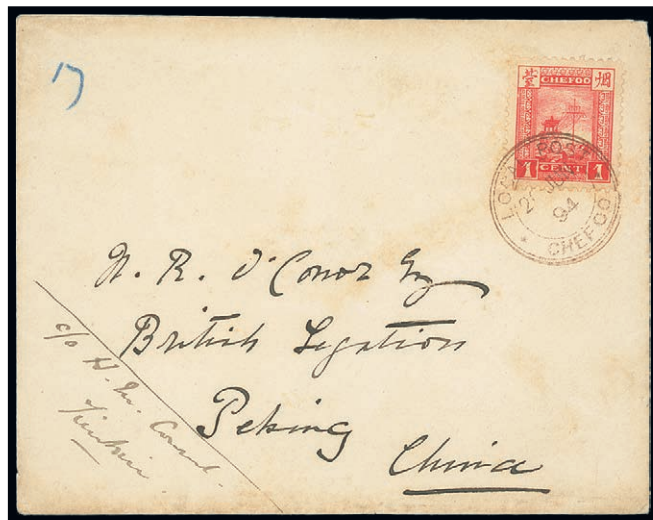 17
烟 CHEFOO 臺
1 CENT 1
LOCAL POST
JUN
94
CHEFOO
N. R. O'Conor Esq
British Legation
Peking
China
c/o H. M. Consul
Tientsin